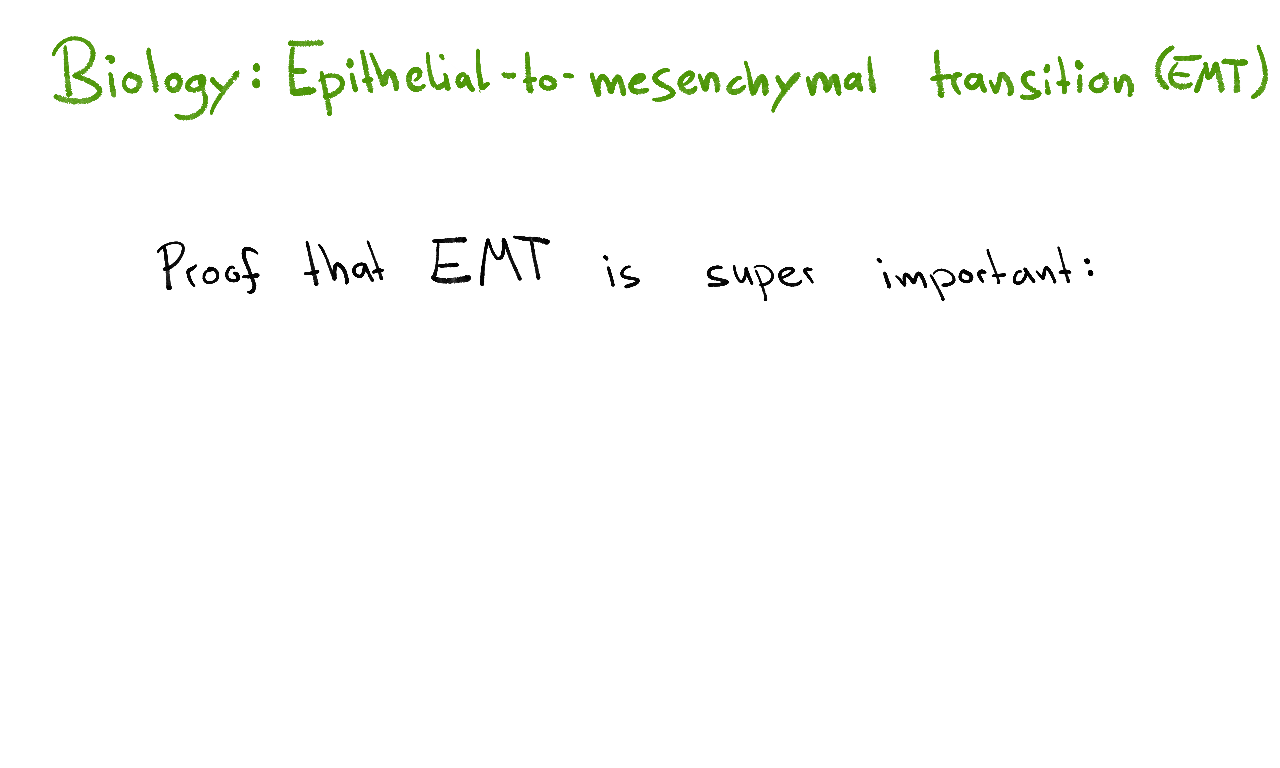 Biology: Epithelial-to-mesenchymal transition (EMT)
Proof that EMT is super important: